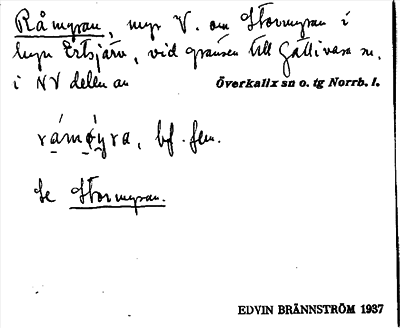 Råmyran, myr V. om Stormyran i
byn Ertsjärv, vid gränsen till Gällivare sn.
i NV delen av Överkalix sn o. tg Norrb. l.
råmøyra, bf. fem.
Se Stormyran.
EDVIN BRÄNNSTRÖM 1937